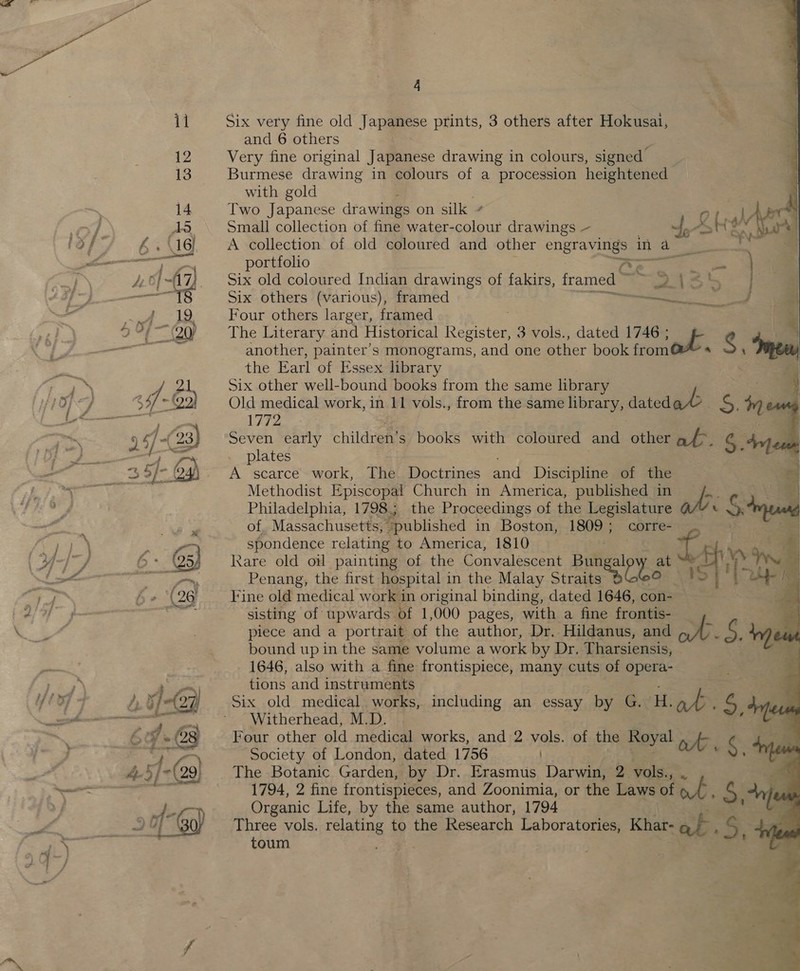 4
11 Six very fine old Japanese prints, 3 others after Hokusai,
and 6 others
12 Very fine original Japanese drawing in colours, signed
13 Burmese drawing in colours of a procession heightened
with gold
14 Two Japanese drawings on silk
15 Small collection of fine water-colour drawings
6. (16) A collection of old coloured and other engravings in a
portfolio
(17) Six old coloured Indian drawings of fakirs, framed
18 Six others (various), framed
19 Four others larger, framed
(20) The Literary and Historical Register, 3 vols., dated 1746 ;
another, painter's monograms, and one other book from at S.
the Earl of Essex library
21 Six other well-bound books from the same library
(22) Old medical work, in 11 vols., from the same library, dated at S.
1772
(23) Seven early children's books with coloured and other at. S.
plates
35/- (24) A scarce work, The Doctrines and Discipline of the
Methodist Episcopal Church in America, published in
Philadelphia, 1798 ; the Proceedings of the Legislature at S.
of Massachusetts, published in Boston, 1809 ; corre-
spondence relating to America, 1810
6- (25) Rare old oil painting of the Convalescent Bungalow at
Penang, the first hospital in the Malay Straits
6- (26) Fine old medical work in original binding, dated 1646, con-
sisting of upwards of 1,000 pages, with a fine frontis-
piece and a portrait of the author, Dr. Hildanus, and at. S.
bound up in the same volume a work by Dr. Tharsiensis,
1646, also with a fine frontispiece, many cuts of opera-
tions and instruments
(27) Six old medical works, including an essay by G. H. at. S.
Witherhead, M.D.
(28) Four other old medical works, and 2 vols. of the Royal at. S.
Society of London, dated 1756
45/- (29) The Botanic Garden, by Dr. Erasmus Darwin, 2 vols.,
1794, 2 fine frontispieces, and Zoonimia, or the Laws of at. S.
Organic Life, by the same author, 1794
(30) Three vols. relating to the Research Laboratories, Khar- at. S.
toum